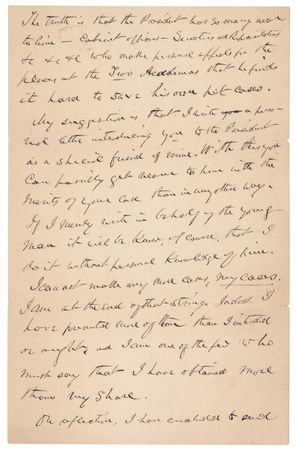 The truth is that the President has so many near
to him — Cabinet officers — Senators and Representatives
&c &c &c who make personal appeals for the
places at the Two Academies that he finds
it hard to save his own pet cases.
My suggestion is that I write you a person-
nal letter introducing you to the President
as a special friend of mine. With this you
can possibly get nearer to him with the
merits of your case than in any other way.
If I merely write in behalf of the young
man it will be known, of course, that I
do it without personal knowledge of him.
I cannot make any more cases, my cases.
I am at the end of that string. Indeed I
have presented more of them than I intended
or ought, and I am one of the few who
must say that I have obtained more
than my share.
On reflection, I have concluded to send